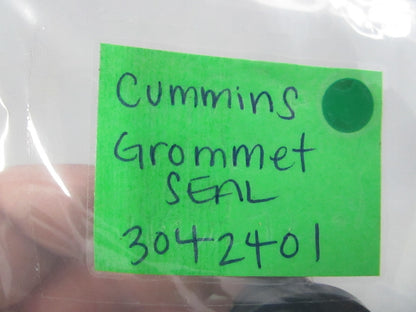 Cummins
Grommet
SEAL
3042401